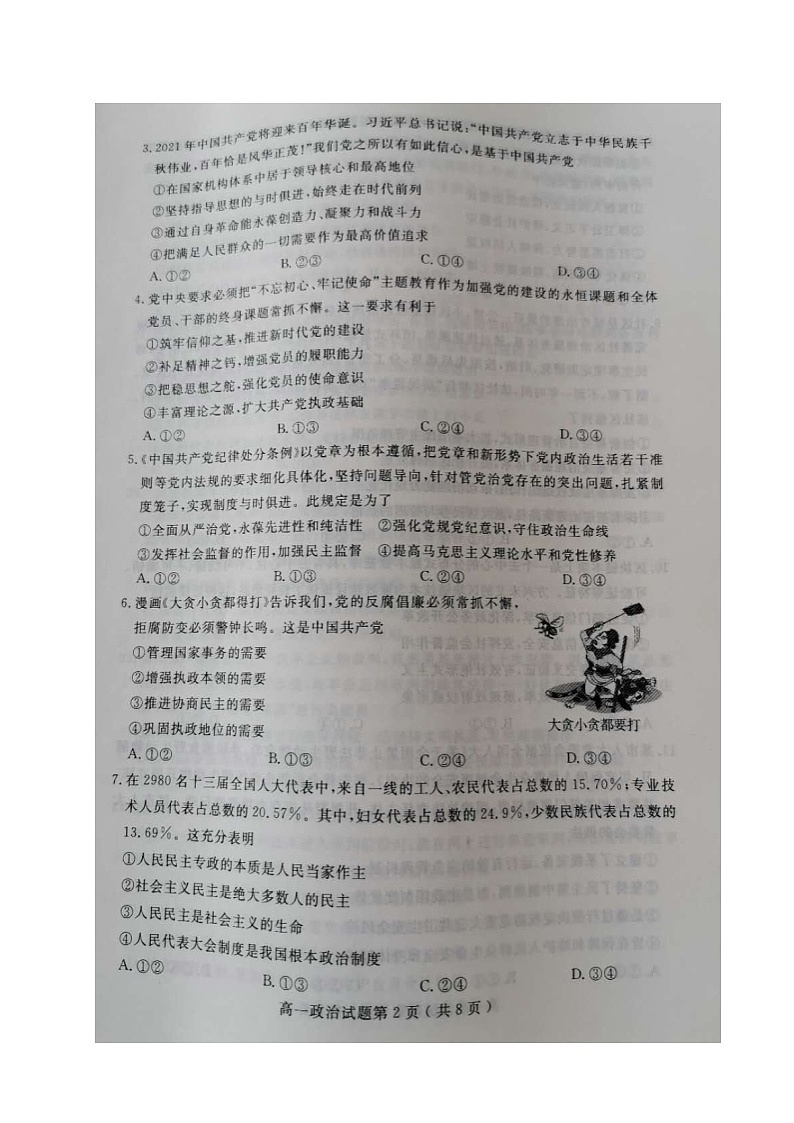 3.2021年中国共产党将迎来百年华诞。习近平总书记说:“中国共产党立志于中华民族千
秋伟业,百年恰是风华正茂!”我们党之所以有如此信心,是基于中国共产党
①在国家机构体系中居于领导核心和最高地位
②坚持指导思想的与时俱进,始终走在时代前列
③通过自身革命能永葆创造力、凝聚力和战斗力
④把满足人民群众的一切需要作为最高价值追求
A.①② B.②③ C.①④ D.③④
4.党中央要求必须把“不忘初心、牢记使命”主题教育作为加强党的建设的永恒课题和全体
党员、干部的终身课题常抓不懈。这一要求有利于
①筑牢信仰之基,推进新时代党的建设
②补足精神之钙,增强党员的履职能力
③把稳思想之舵,强化党员的使命意识
④丰富理论之源,扩大共产党执政基础
A.①② B.①③ C.②④ D.③④
5.《中国共产党纪律处分条例》以党章为根本遵循,把党章和新形势下党内政治生活若干准
则等党内法规的要求细化具体化,坚持问题导向,针对管党治党存在的突出问题,扎紧制
度笼子,实现制度与时俱进。此规定是为了
①全面从严治党,永葆先进性和纯洁性 ②强化党规党纪意识,守住政治生命线
③发挥社会监督的作用,加强民主监督 ④提高马克思主义理论水平和党性修养
A.①② B.①③ C.②④ D.③④
6.漫画《大贪小贪都得打》告诉我们,党的反腐倡廉必须常抓不懈,
拒腐防变必须警钟长鸣。这是中国共产党
①管理国家事务的需要
②增强执政本领的需要
③推进协商民主的需要
④巩固执政地位的需要
大贪小贪都要打
A.①② B.①③ C.②④ D.③④
7.在2980名十三届全国人大代表中,来自一线的工人、农民代表占总数的15.70%;专业技
术人员代表占总数的20.57%。其中,妇女代表占总数的24.9%,少数民族代表占总数的
13.69%。这充分表明
①人民民主专政的本质是人民当家作主
②社会主义民主是绝大多数人的民主
③人民民主是社会主义的生命
④人民代表大会制度是我国根本政治制度
A.①② B.①③ C.②④ D.③④
高一政治试题第2页(共8页)